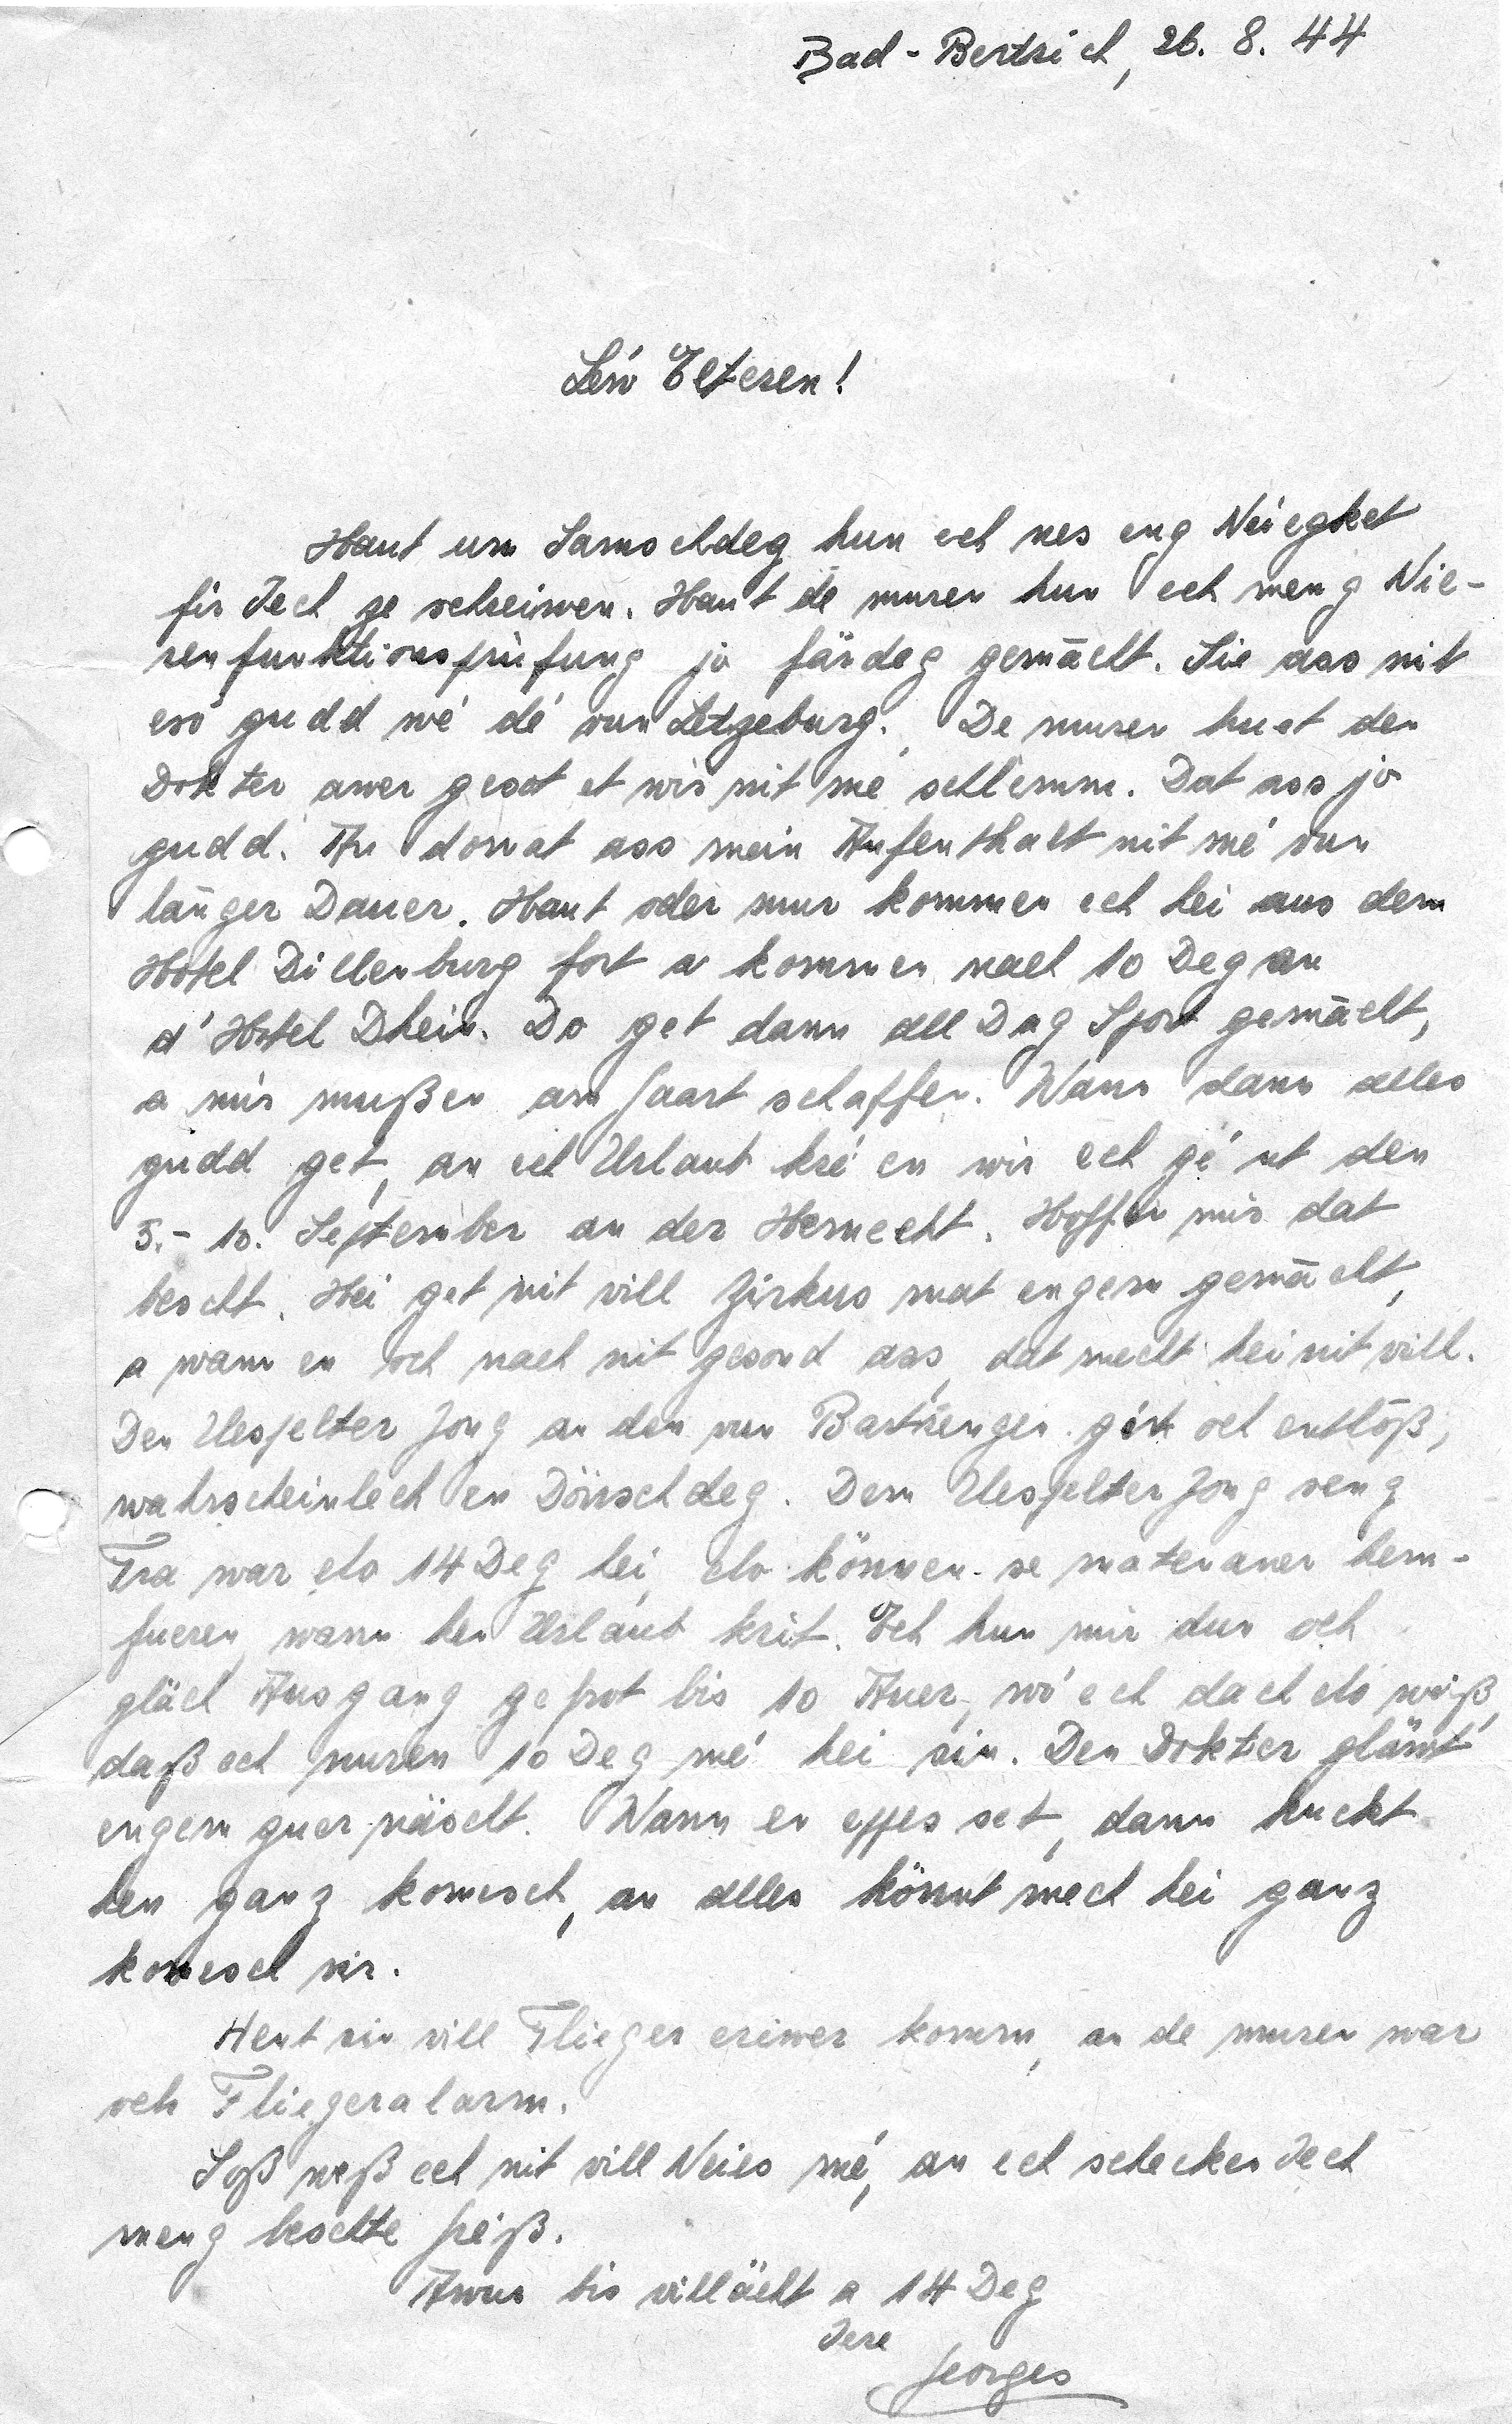 Bad-Bertrich, 26. 8. 44
Léw Elteren!
Haut um Samschdeg hun ech nes eng Neiegket
fir Iech ze schreiwen. Haut de muren hun ech meng Nie-
renfunktionsprüfung jo färdeg gemächt. Sie ass nit
esó gudd wé dé vun Letzeburg. De muren huet den
Dokter awer gesot et wir nit mé schlemm. Dat ass jo
gudd. An domat ass mein Aufenthalt nit mé vun
länger Dauer. Haut oder mur kommen ech hei aus dem
Hotel Dillenburg fort a kommen nach 10 Deg an
d'Hotel Dhein. Do get dann all Dag Sport gemächt,
a mir mußen am Gaart schaffen. Wann dann alles
gudd get, an ech Urlaub kréen wir ech gént den
5.- 10. September an der Hemecht. Hoffen mir dat
bescht. Hei get nit vill Zirkus mat engem gemächt,
a wann en och nach nit gesond ass, dat mecht hei nit vill.
Den Uespelter Jong an den vun Bartrengen gét och entlôß,
wahrscheinlech en Dönschdeg. Dem Uespelter Jong seng
Fra war elo 14 Deg hei, elo können se matenaner hem-
fueren, wann hen Urlaub krit. Ech hun mir dun och
gläch Ausgang gefrot bis 10 Auer, wó ech dach elo weiß,
daß ech nuren 10 Deg mé hei sin. Den Dokter gläwt
engem guer näischt. Wann en eppes set, dann kuckt
hen ganz komesch, an alles könnt mech hei ganz
komesch vir.
Heut sin vill Flieger eriwer komm, an de muren war
och Fliegeralarm.
Soß weß ech nit vill Neies mé, an ech schecken Iech
meng beschte Gréiß.
Awus bis villächt a 14 Deg
Iere
Georges